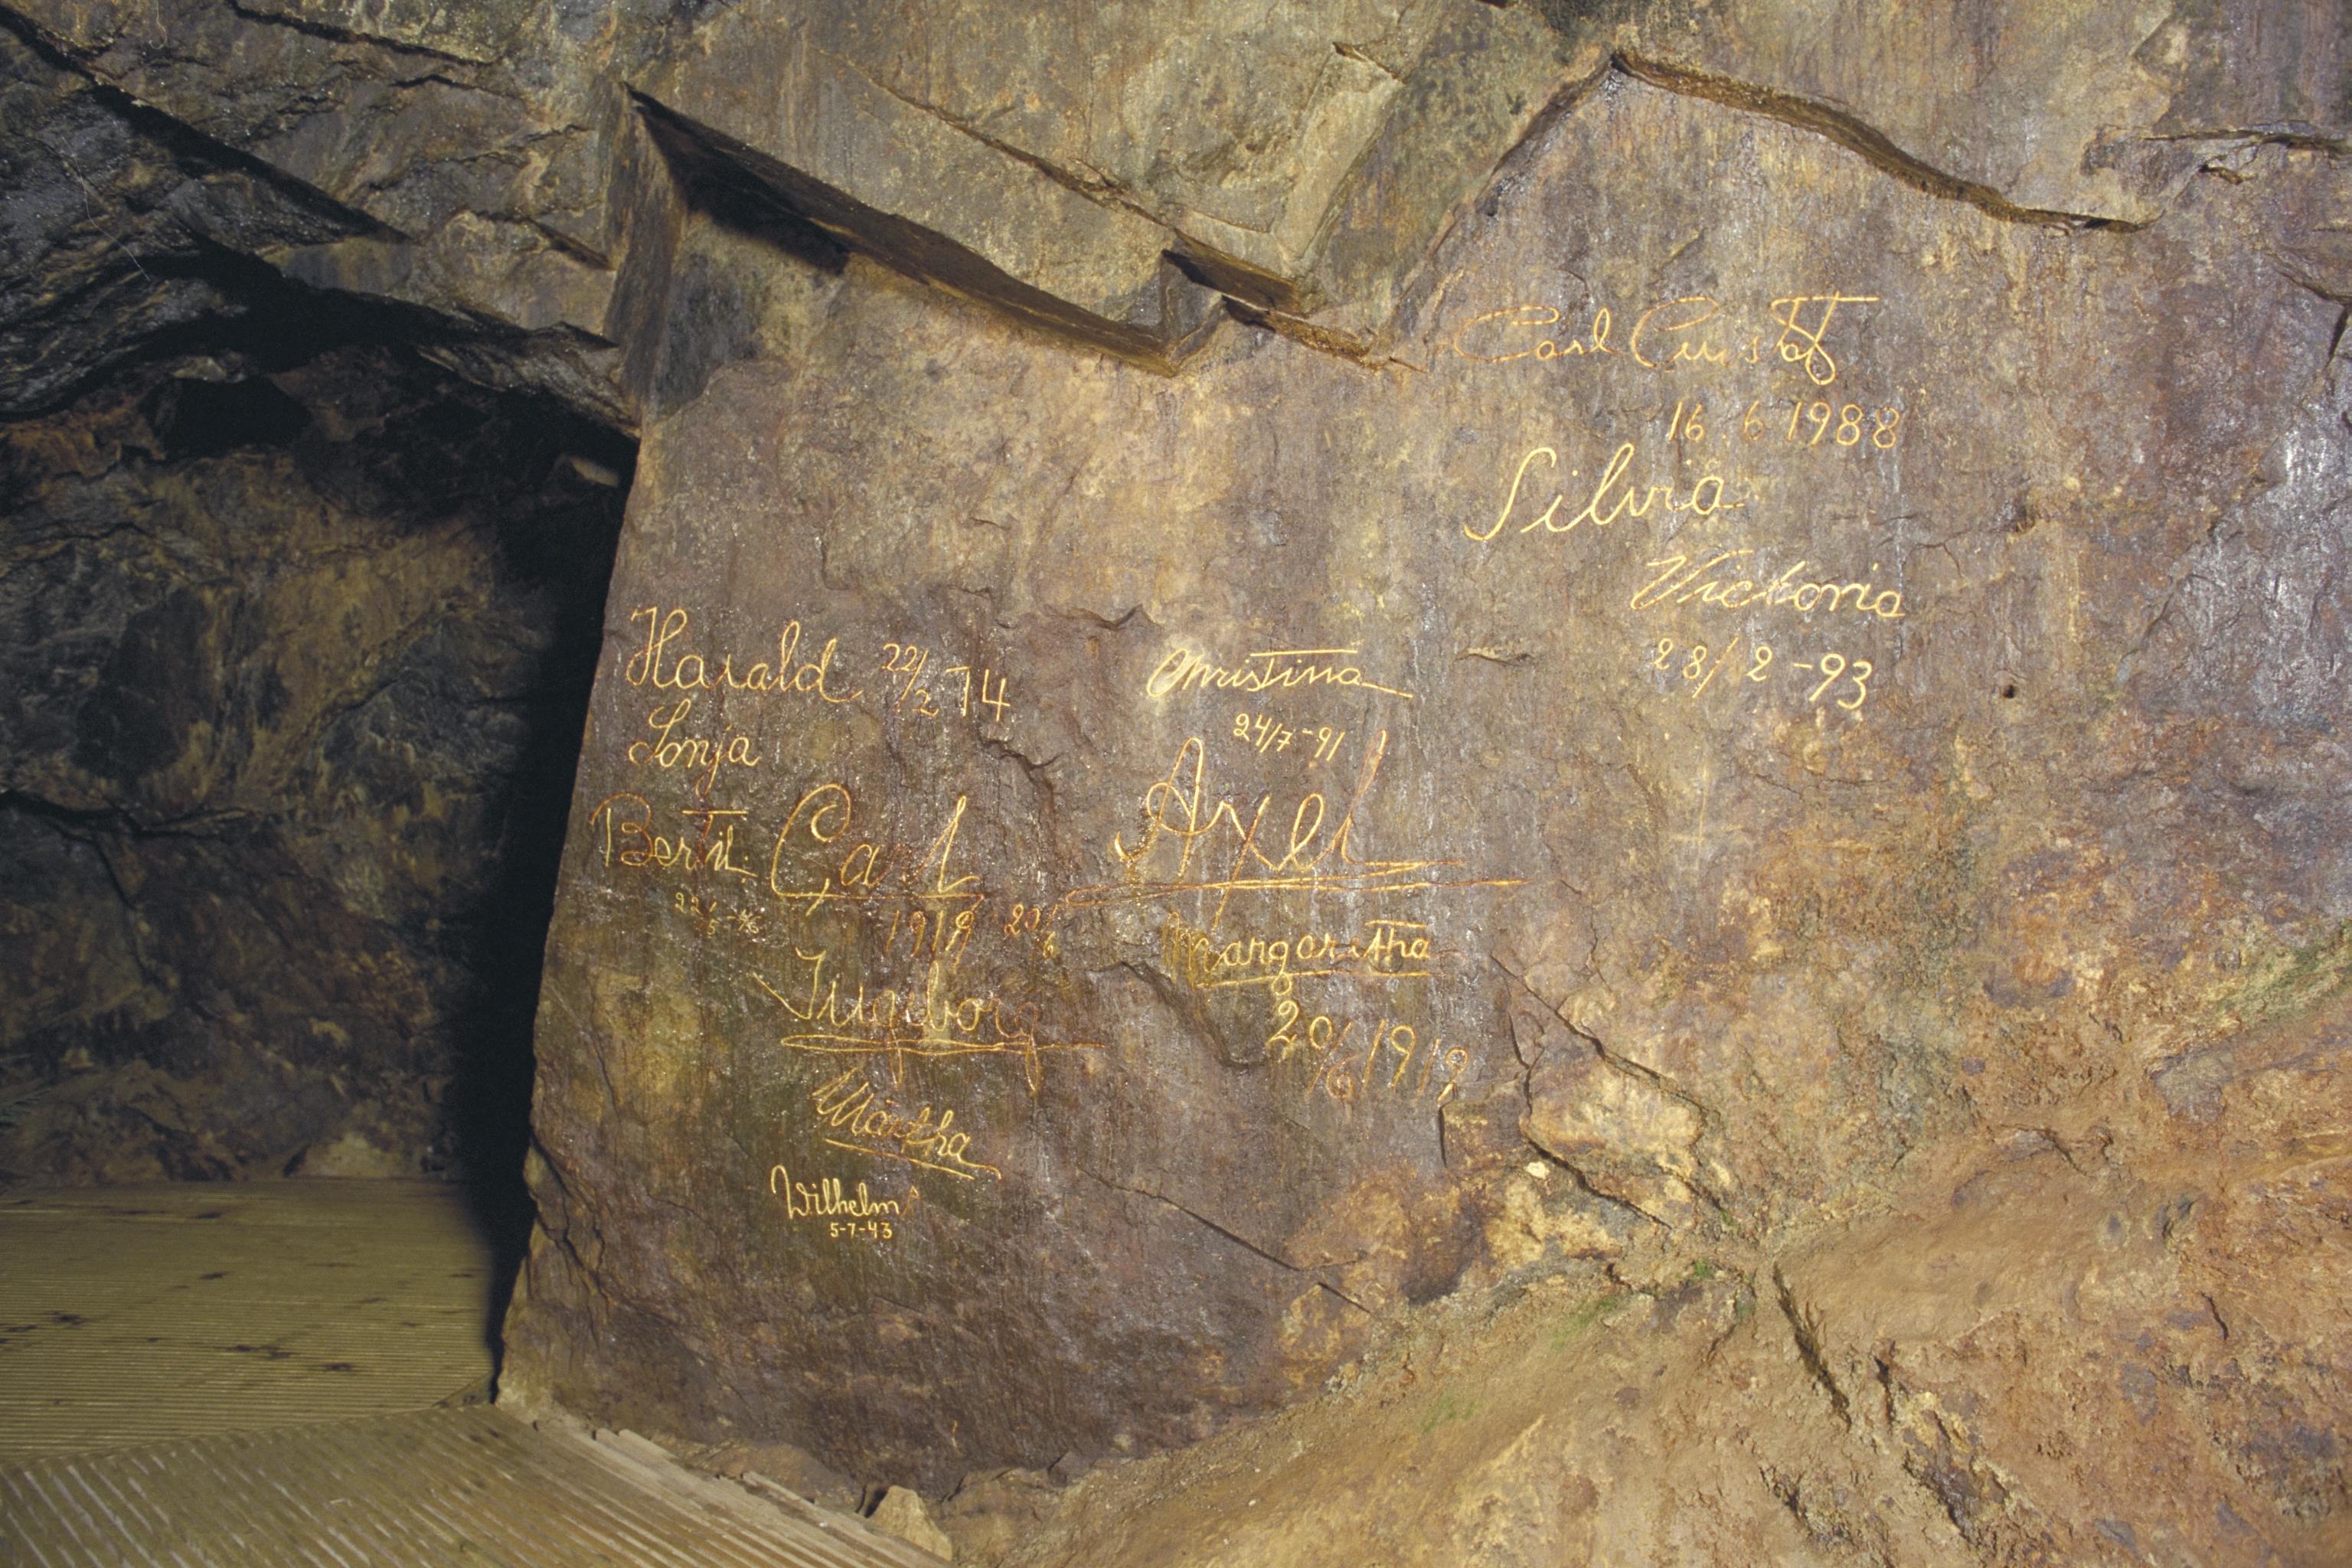 Carl Gustaf
16.6 1988
Silvia
Victoria
28/2-93
Harald 22/2 74
Sonja
Christina
24/7-91
Bertil
Carl
1919 20/6
Axel
Margaretha
20/6 1919
Ingeborg
Märtha
Wilhelm
5-7-43